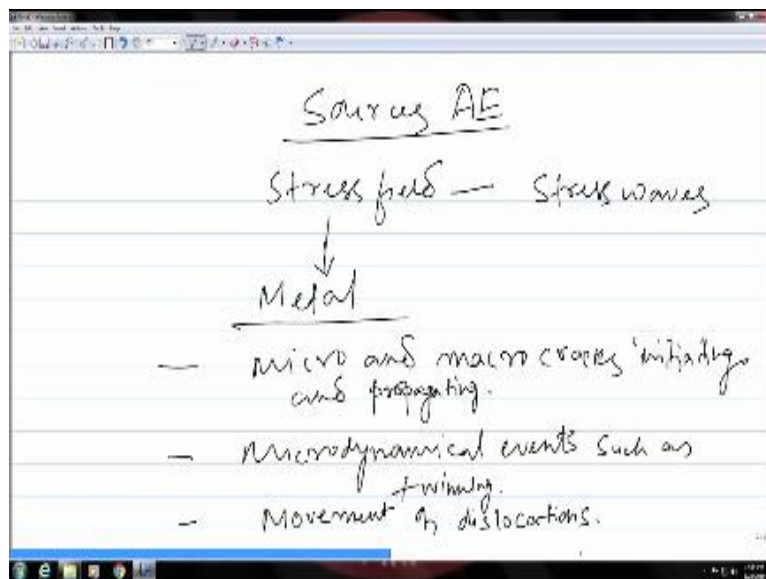 Sources AE
Stress field — Stress waves
Metal
— Micro and macro cracks initiating
and propagating.
— Microdynamical events such as
twinning.
— Movement of dislocations.